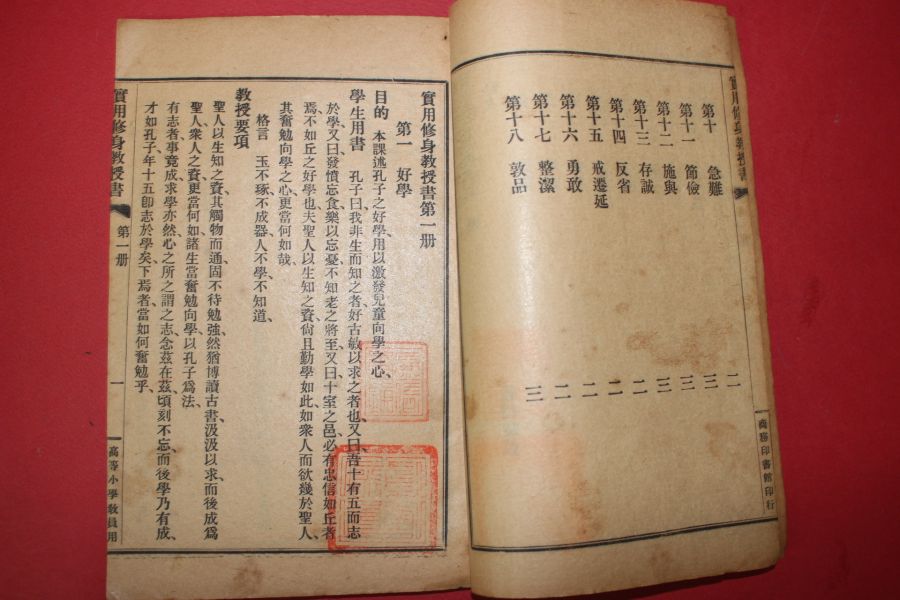 實用修身教授書
第十　急難　二
第十一　節儉　三
第十二　施與　三
第十三　存誠　三
第十四　反省　二
第十五　戒遷延　二
第十六　勇敢　二
第十七　整潔　二
第十八　敦品　三
商務印書館印行
實用修身教授書第一册
第一　好學
目的　本課述孔子之好學、用以激發兒童向學之心、
學生用書　孔子曰、我非生而知之者、好古敏以求之者也、又曰、吾十有五而志
於學、又曰、發憤忘食、樂以忘憂、不知老之將至、又曰、十室之邑、必有忠信如丘者
焉、不如丘之好學也、夫聖人以生知之資、尙且勤學如此、如衆人而欲幾於聖人、
其奮勉向學之心、更當何如哉、
教授要項
格言　玉不琢、不成器、人不學、不知道、
聖人以生知之資、其觸物而通、固不待勉強、然猶博讀古書、汲汲以求、而後成爲
聖人、衆人之資、更當何如、諸生當奮勉向學、以孔子爲法、
有志者事竟成、求學亦然、心之所之謂之志、念茲在茲、頃刻不忘、而後學乃有成、
才如孔子、年十五卽志於學矣、下焉者當如何奮勉乎、
實用修身教授書
第一册
一
高等小學教員用